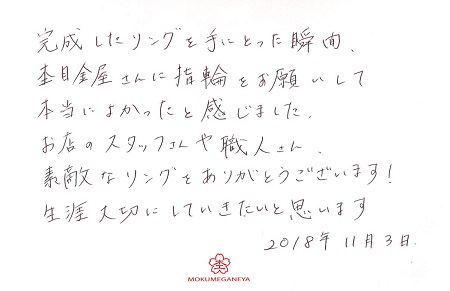 完成したリングを手にとった瞬間、
杢目金屋さんに指輪をお願いして
本当によかったと感じました。
お店のスタッフさんや職人さん、
素敵なリングをありがとうございます!
生涯大切にしていきたいと思います
2018年11月3日.
MOKUMEGANEYA